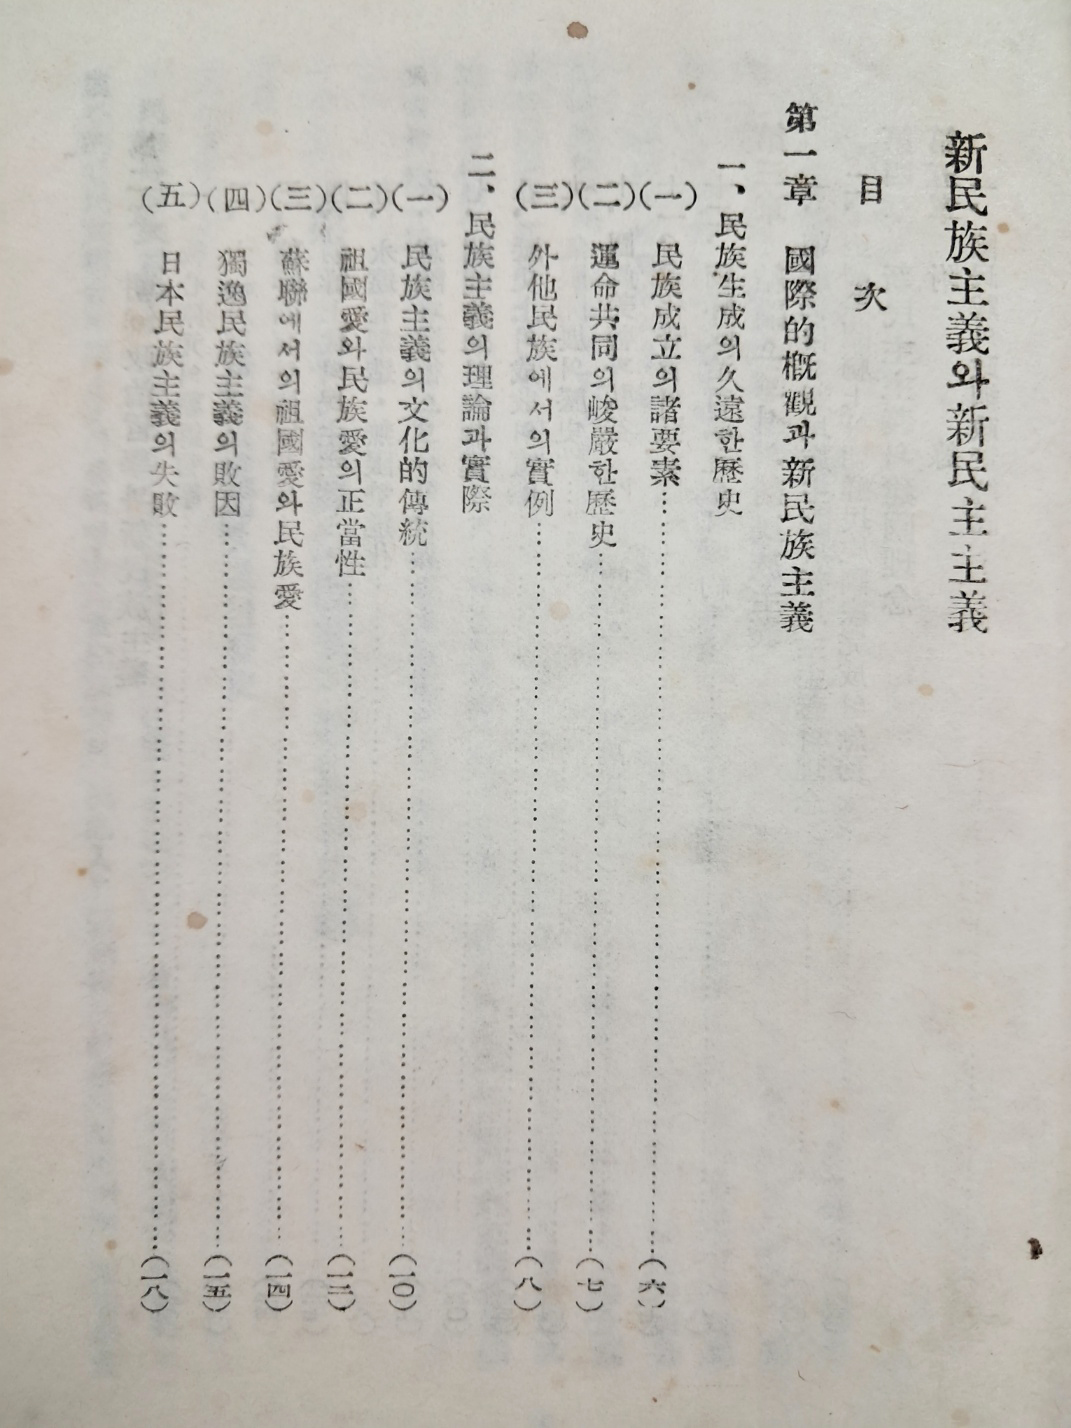 新民族主義와新民主主義
目次
第一章 國際的概觀과新民族主義
一、民族生成의久遠한歷史
(一) 民族成立의諸要素……(六)
(二) 運命共同의峻嚴한歷史……(七)
(三) 外他民族에서의實例……(八)
二、民族主義의理論과實際
(一) 民族主義의文化的傳統……(一〇)
(二) 祖國愛와民族愛의正當性……(一二)
(三) 蘇聯에서의祖國愛와民族愛……(一四)
(四) 獨逸民族主義의敗因……(一五)
(五) 日本民族主義의失敗……(一八)